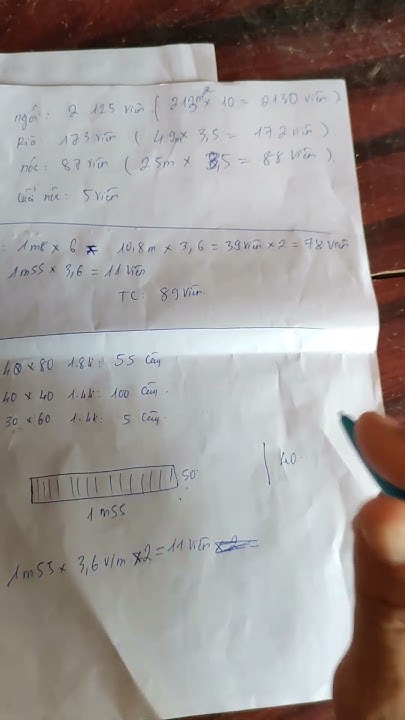 ngói: 2 125 viên ( 213m² x 10 = 2130 viên )
rìa: 173 viên ( 49m x 3,5 = 172 viên )
nóc: 87 viên ( 25m x 3,5 = 88 viên )
cuối nóc: 5 viên
: 1m x 6 10,8m x 3,6 = 39 viên x 2 = 78 viên
1m55 x 3,6 = 11 viên
TC: 89 viên.
40 x 80 1.8k: 55 cây
40 x 40 1.4k: 100 cây.
30 x 60 1.4k: 5 cây.
50
40
1m55
1m55 x 3,6 v/m x 2 = 11 viên